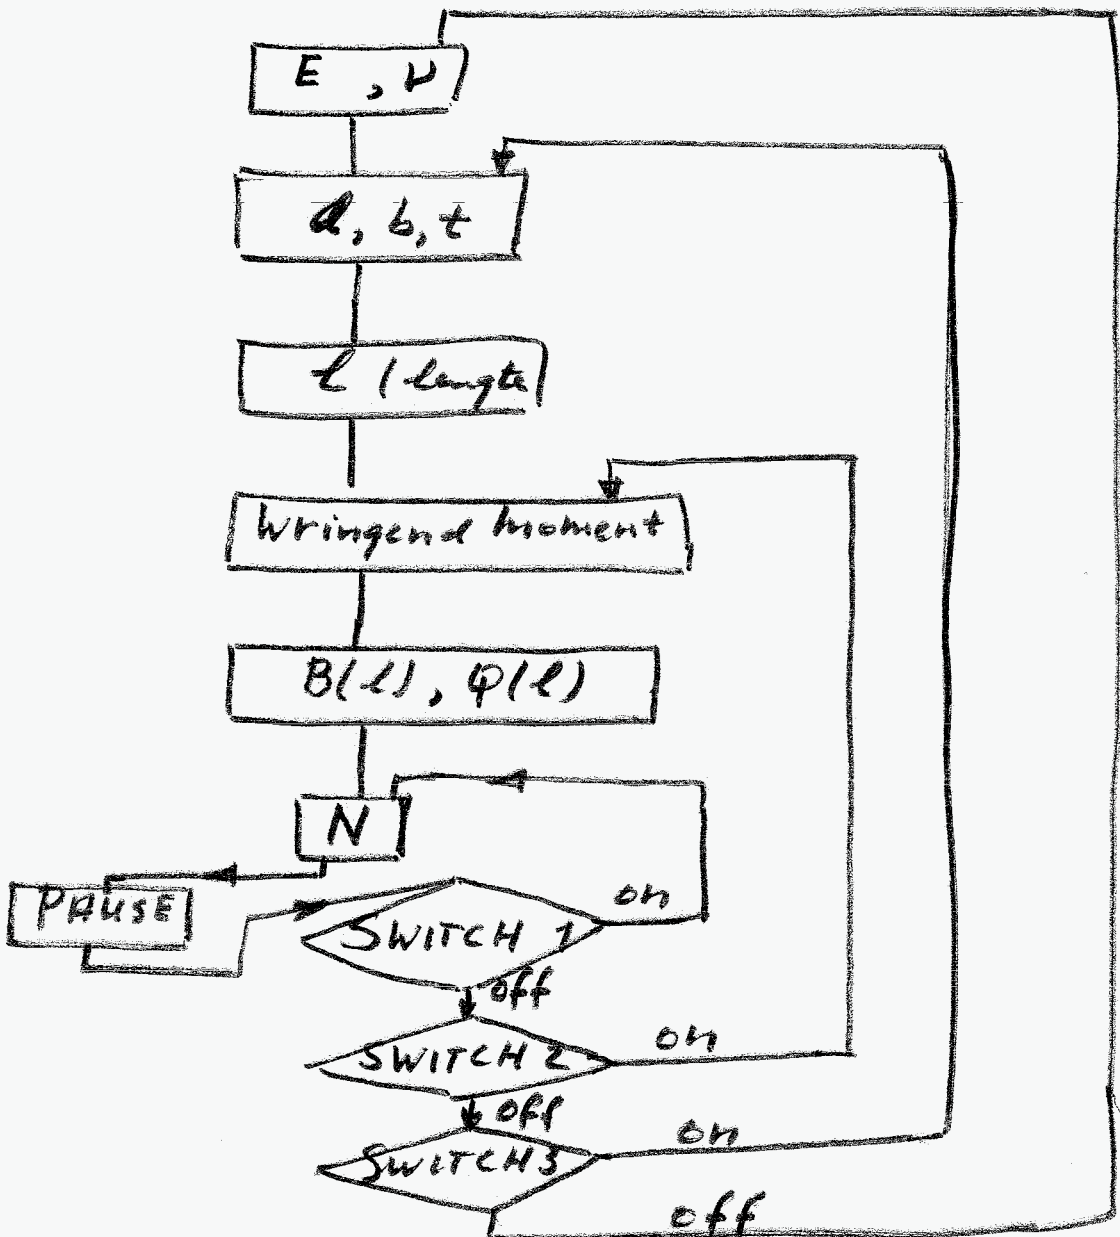 E , ν
d, b, t
l (lengte
Wringend moment
B(l), φ(l)
N
PAUSE
SWITCH 1
on
off
SWITCH 2
on
off
SWITCH 3
on
off